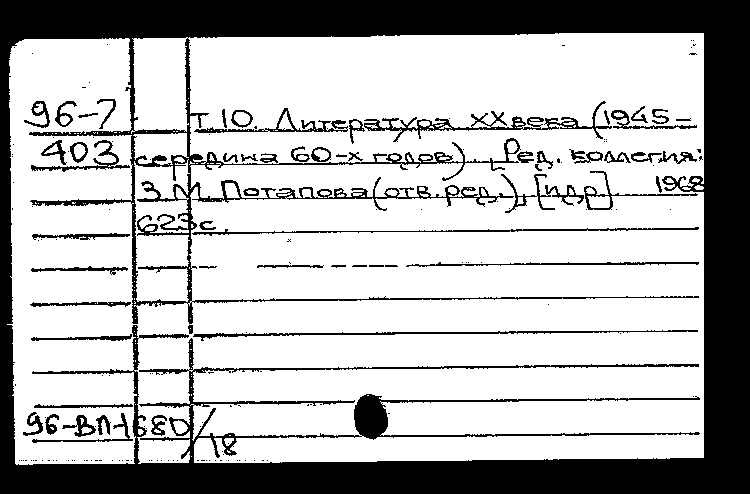 96-7 Т 10. Литература XX века (1945-
403 середина 60-х годов). [Ред. коллегия:
З.М. Потапова (отв. ред.), [и др]. 1968
623 с.
96-ВП-1680/18